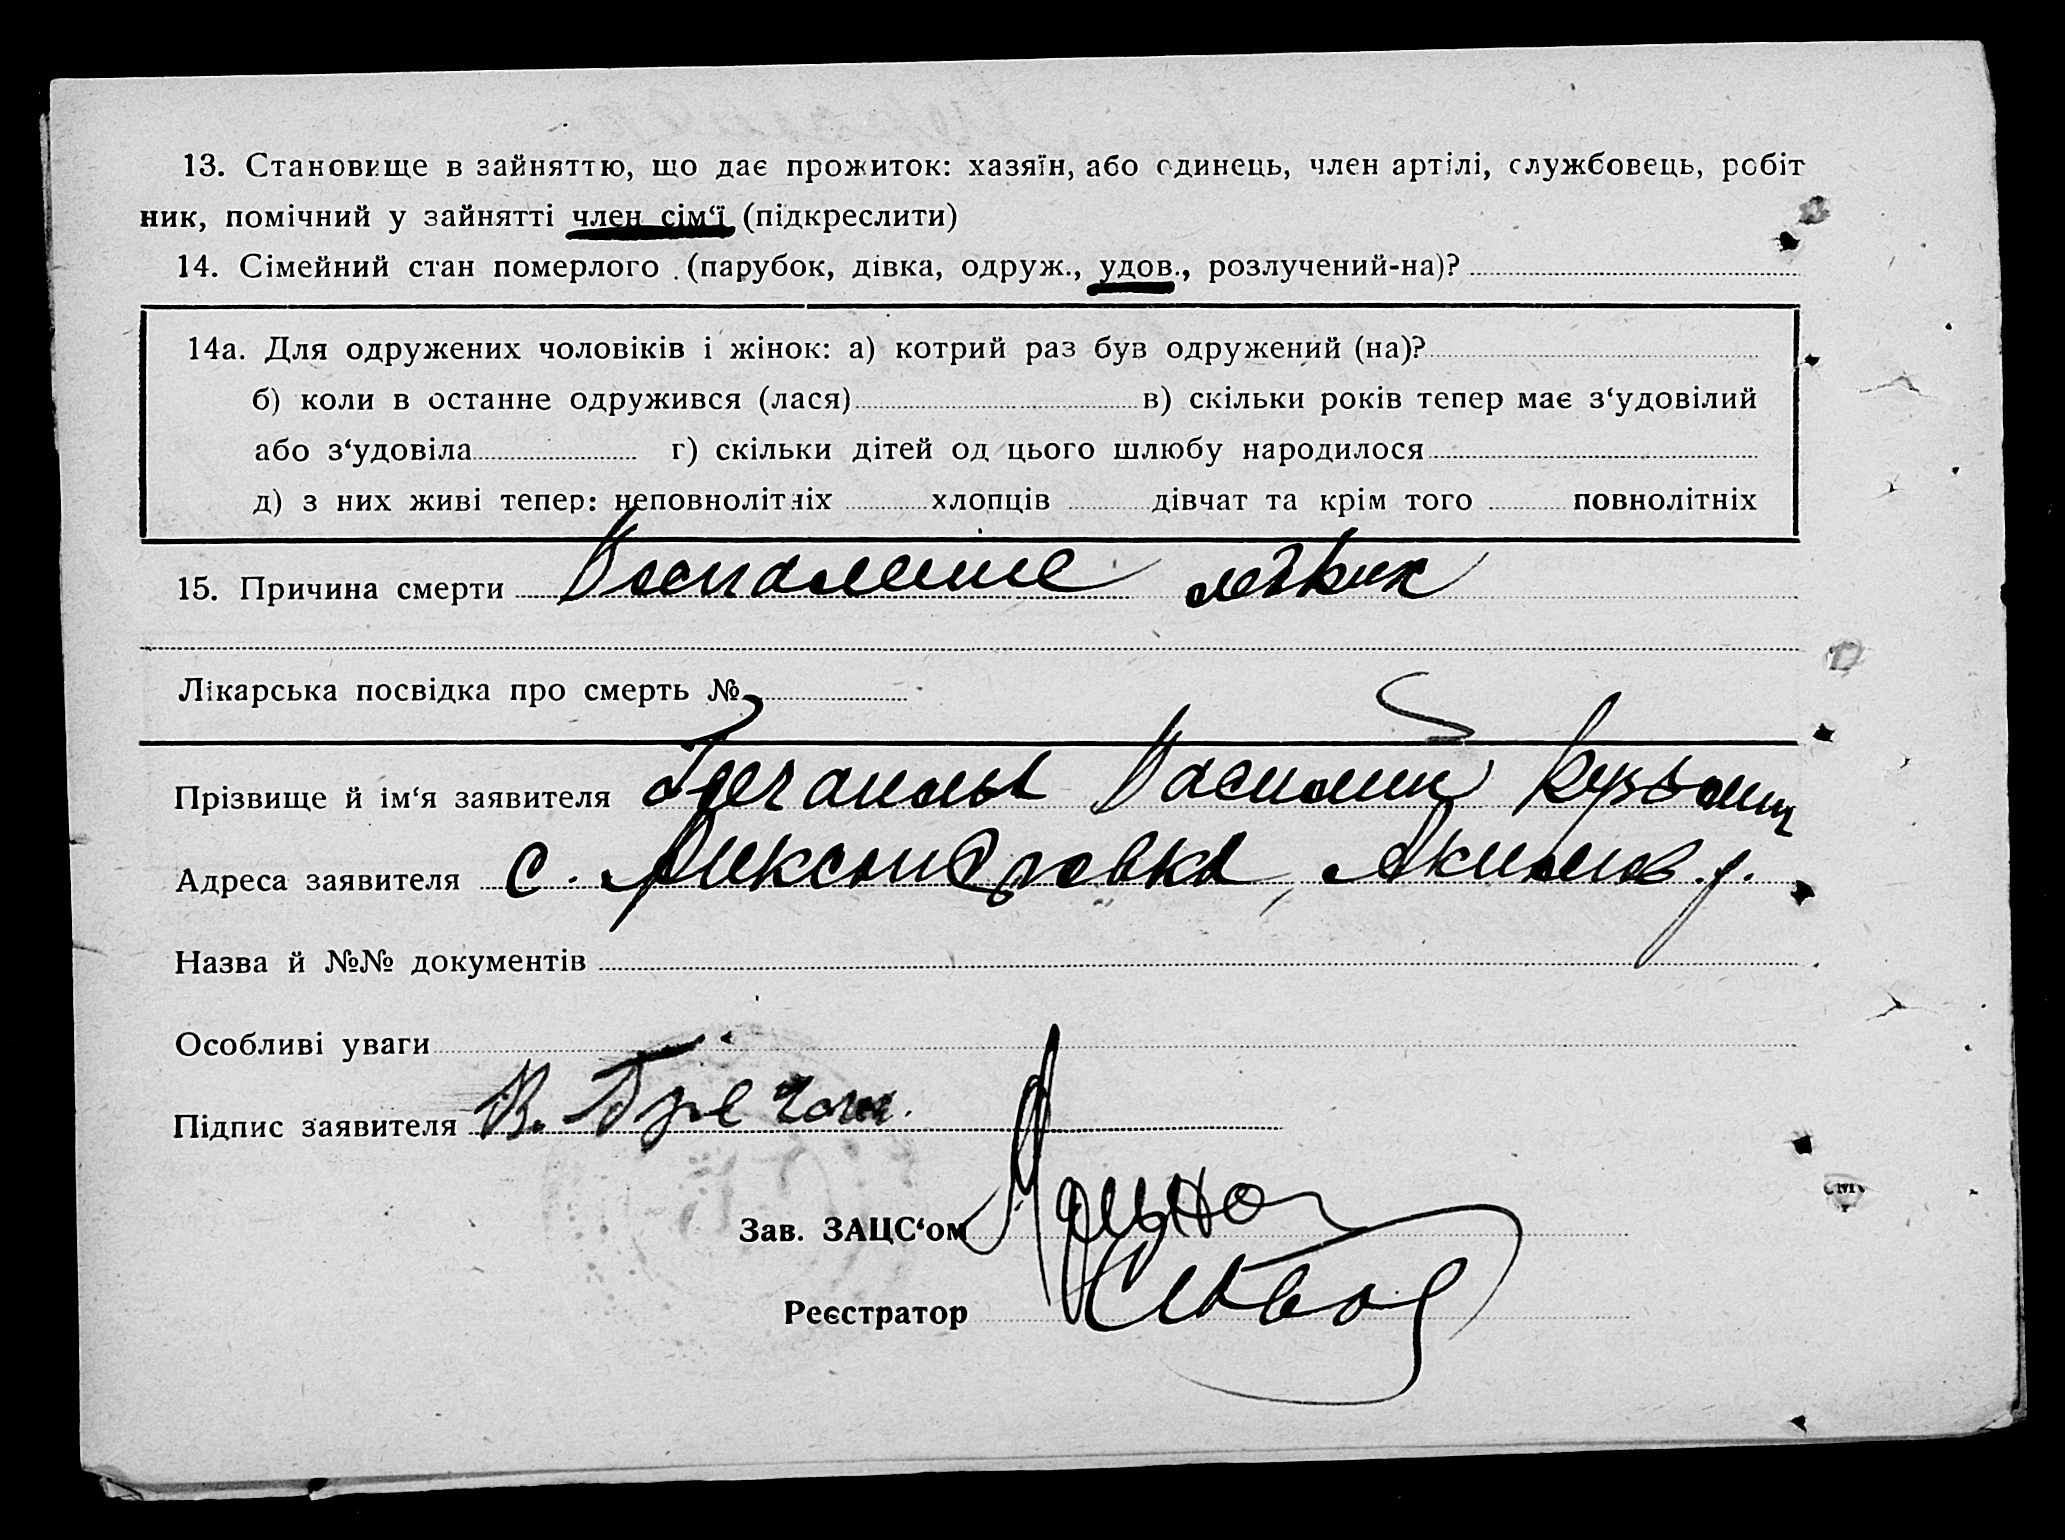 13. Становище в зайняттю, що дає прожиток: хазяїн, або одинець, член артілі, службовець, робіт
ник, помічний у зайнятті член сім‘ї (підкреслити)
14. Сімейний стан померлого (парубок, дівка, одруж., удов., розлучений-на)?
14а. Для одружених чоловіків і жінок: а) котрий раз був одружений (на)?
б) коли в останне одружився (лася) в) скільки років тепер має з‘удовілий
або з‘удовіла г) скільки дітей од цього шлюбу народилося
д) з них живі тепер: неповнолітніх хлопців дівчат та крім того повнолітніх
15. Причина смерти Воспаление легких
Лікарська посвідка про смерть №
Прізвище й ім‘я заявителя Василий Кузьмич
Адреса заявителя с. Александровка, Акимов. р.
Назва й №№ документів
Особливі уваги
Підпис заявителя В.
Зав. ЗАЦС‘ом
Реєстратор